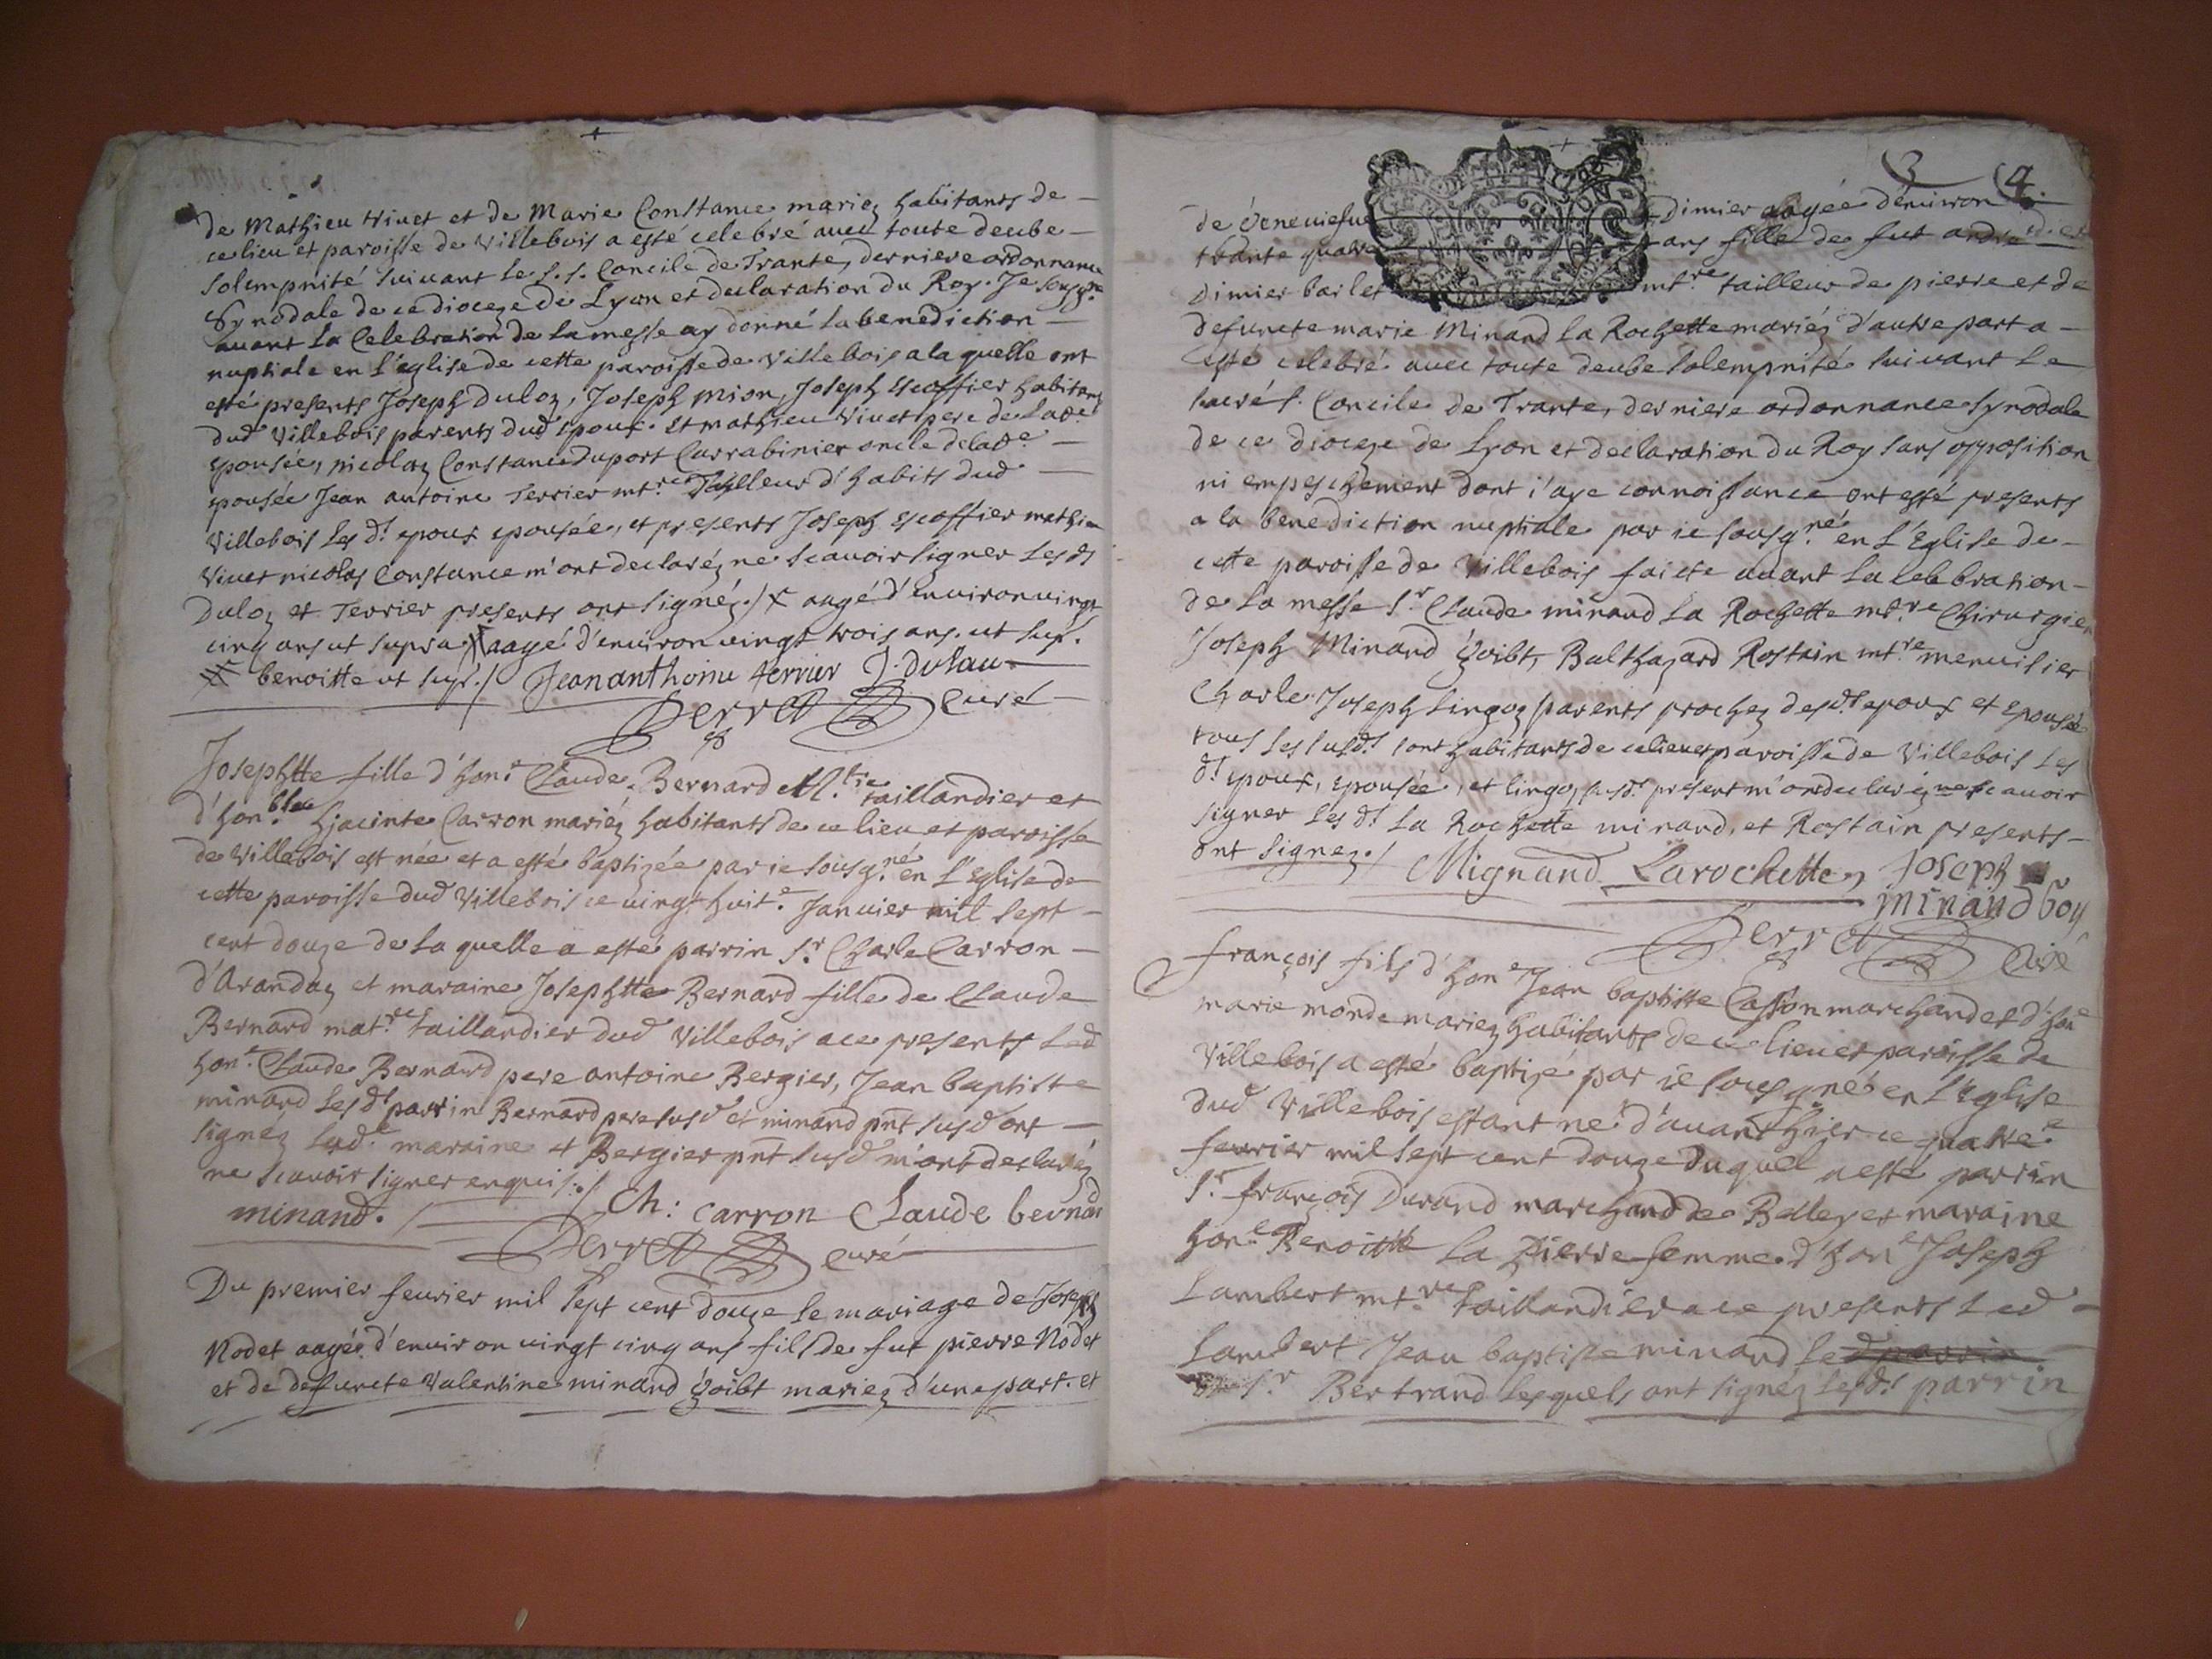 de Mathieu Vivet et de Marie Constance mariez habitants de
ce lieu et paroisse de Villebois a esté celebré avec toute deube
solempnité suivant le s. s. Concile de Trante, derniere ordonnance
Synodale de ce dioceze de Lyon et declaration du Roy. Je sousg.né
avant la Celebration de la messe ay donné la benediction
nuptiale en l'église de cette paroisse de Villebois a la quelle ont
esté presents Joseph Duloz, Joseph Mion, Joseph Escoffier habitants
dud Villebois parents dud époux. Et mathieu Vivet pere de lad.e
epousée, nicolas Constance Duport Carrabinier oncle de lad.e
epousée Jean antoine Terrier mt.re Tailleur d'habits dud
Villebois les d.t epoux epousée, et presents Joseph Escoffier mathieu
Vivet nicolas Constance m'ont declaréz ne scavoir signer les dt
Duloz et Terrier presents ont signéz ./ X aagé d'environ vingt
cinq ans ut supra. X aagé d'environ vingt trois ans. ut sup.
X benoitte ut sup. / Jean anthoine terrier J. dulau
Perret curé
Josephtte fille d'hon.e Claude Bernard M.tre taillandier et
d'hon.ble hjacinte Carron mariéz habitants de ce lieu et paroisse
de Villebois est née et a esté baptizée par je sousg.né en l'Eglise de
cette paroisse dud Villebois ce vingt huit.e Janvier mil sept
cent douze de la quelle a esté parrin s.r Charle Carron
d'Arandaz et maraine Josephtte Bernard fille de Claude
Bernard mat.re taillandier dud Villebois a ce presents led
hon.e Claude Bernard pere antoine Bergier, Jean baptiste
minand les d.t parrin Bernard pere susd et minand pnt susd ont
signéz lad.e maraine et Bergier pnt susd m'ont declaréz
ne scavoir signer enquis ./ Ch: carron Claude bernard
minand. /
Perret curé
Du premier fevrier mil sept cent douze le mariage de Joseph
Nodet aagée d'environ vingt cinq ans fils de fut pierre Nodet
et de defuncte Valentine minand goibt mariez d'une part. et
3 4.
de Geneviefve Dimier aagée d'environ
trante quatre ans fille de fut andré
Dimier barlet mt.re tailleur de pierre et de
defuncte marie Minand la Rochette mariéz d'autre part a
esté celebré avec toute deube solempnité suivant le
sacré s. Concile de Trante, derniere ordonnance synodale
de ce dioceze de Lyon et declaration du Roy sans opposition
ni empeschement dont j'aye connoissance ont esté presents
a la benediction nuptiale par je sousg.né en l'Eglise de
cette paroisse de Villebois faicte avant la celebration
de la messe s.r Claude minand la Rochette mt.re Chirurgien
Joseph Minand goibt, Balthazard Rostain mt.re menuisier
Charle Joseph lingoz parents prochez des d.t epoux et epousée
tous les susd.t sont habitants de ce lieu et paroisse de Villebois les
d.t epoux, epousée, et lingoz susd.t présent m'ont declaréz ne scavoir
signer les d.t la Rochette minand, et Rostain presents
ont signez ./ Mignand Larochette, Joseph
minand
Perret Curé
françois fils d'hon.e Jean baptiste Casson marchand et d'hon.e
marie monde mariez habitants de ce lieu et paroisse de
Villebois a esté baptizé par je sousg.né en l'Eglise
dud Villebois estant né d'avant hier ce quatre.e
fevrier mil sept cent douze duquel a esté parrin
s.r françois Durand marchand de Belley et maraine
hon.e Benoitte la pierre femme d'hon.e Joseph
Lambert mt.re taillandier a ce presents led
Lambert Jean baptiste minand led parrin
s.r Bertrand lesquels ont signéz les d.t parrin